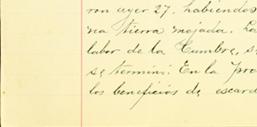 ron ayer 27. habiendos
na tierra mojada. La
labor de la Cumbre, s
se terminó. En la pro
los beneficios de escard